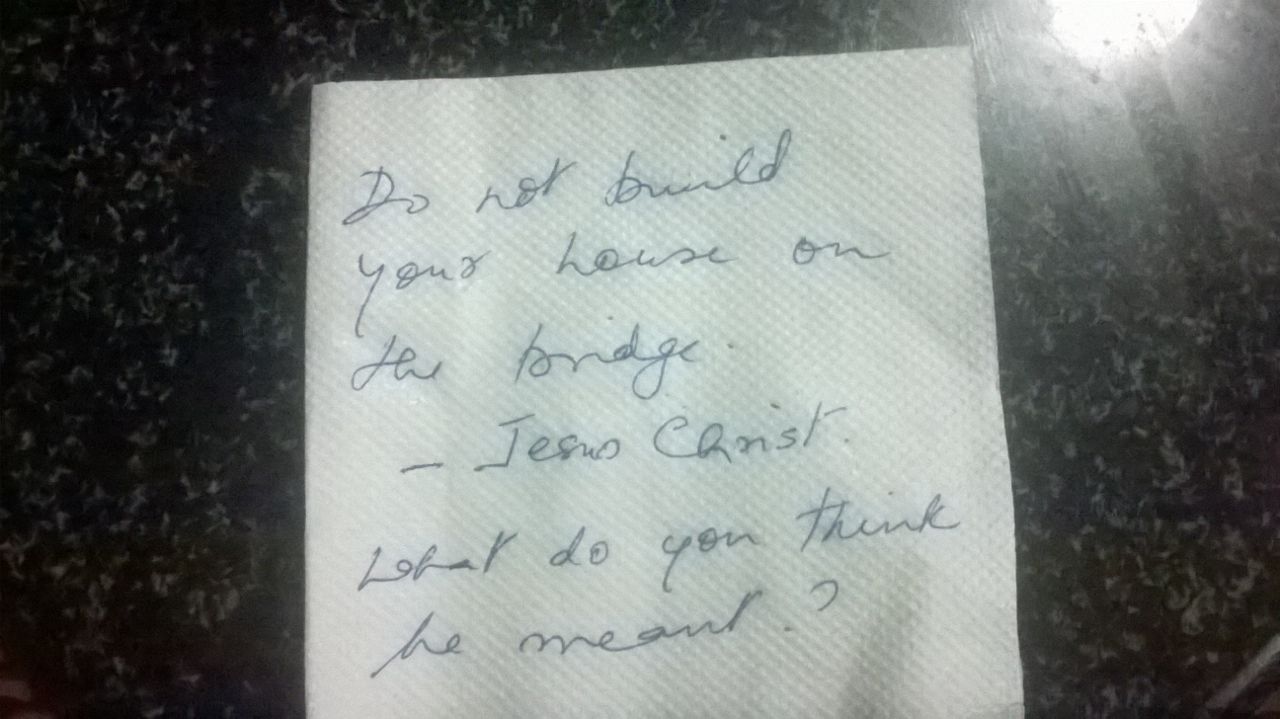 Do not build
your house on
the bridge.
- Jesus Christ.
What do you think
he meant.?